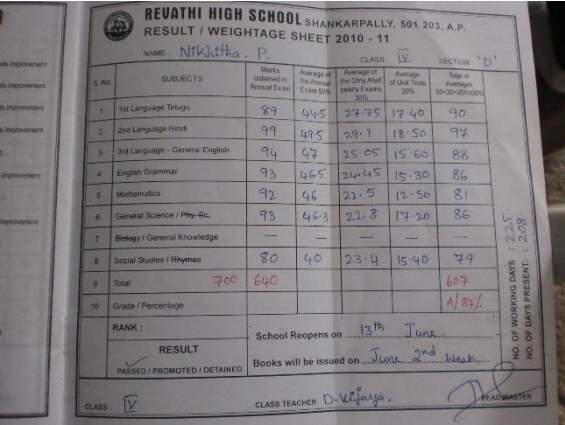 REVATHI HIGH SCHOOL SHANKARPALLY, 501 203, A.P.
RESULT / WEIGHTAGE SHEET 2010 - 11
NAME : Nikhitha . P. CLASS : IV SECTION 'D'
S. No. SUBJECTS Marks obtained in Annual Exam Average of the Annual Exam 50% Average of the Qtrly /Half yearly Exams 30% Average of Unit Tests 20% Total of Averages 50+30+20=100%
1 1st Language Telugu 89 44.5 27.75 17.40 90
2 2nd Language Hindi 99 49.5 29.1 18.50 97
3 3rd Language - General English 94 47 25.05 15.60 88
4 English Grammar 93 46.5 24.45 15.30 86
5 Mathematics 92 46 22.5 12.50 81
6 General Science / Phy-Sc. 93 46.3 22.8 17.20 86
7 Biology / General Knowledge — — — — —
8 Social Studies / Rhymes 80 40 23.4 15.40 79
9 Total 700 640 607
10 Grade / Percentage A/87%
RANK :
RESULT
PASSED / PROMOTED / DETAINED
School Reopens on 13th June.
Books will be issued on June 2nd Weak.
NO. OF WORKING DAYS : 225.
NO. OF DAYS PRESENT : 208
CLASS : IV CLASS TEACHER D. Vijaya. HEADMASTER
Improvement
Improvement
Improvement
Improvement
Improvement
Improvement